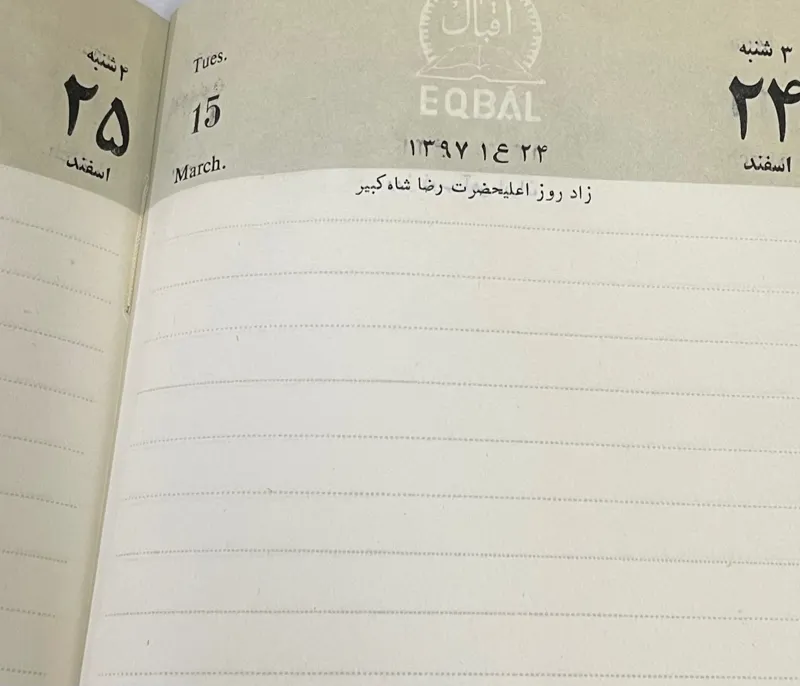 ۳ شنبه
۲۴
اسفند
اقبال
EQBAL
۲۴ ع۱ ۱۳۹۷
Tues.
15
March.
زاد روز اعلیحضرت رضا شاه کبیر
۴ شنبه
۲۵
اسفند